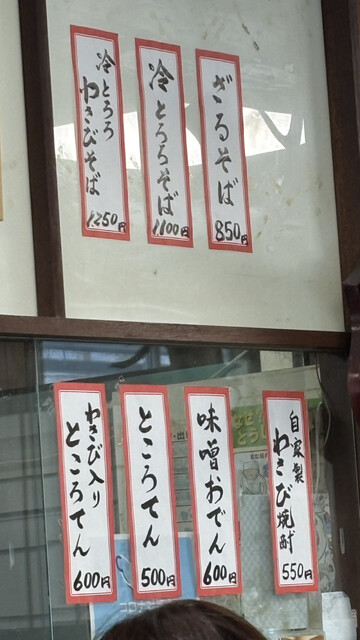 ざるそば
850円
冷とろろそば
1,100円
冷とろろ
わさびそば
1,250円
自家製
わさび焼酎
550円
味噌おでん
600円
ところてん
500円
わさび入り
ところてん
600円